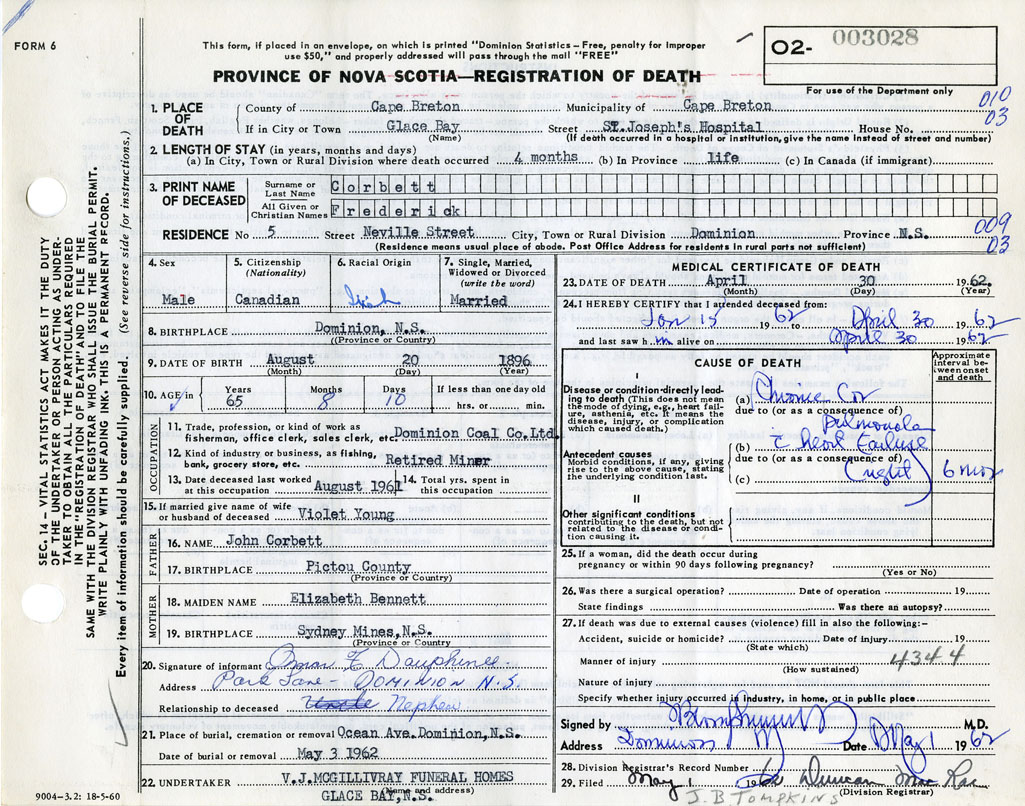 FORM 6
This form, if placed in an envelope, on which is printed "Dominion Statistics – Free, penalty for Improper
use $50," and properly addressed will pass through the mail "FREE"
PROVINCE OF NOVA SCOTIA—REGISTRATION OF DEATH
O2- 003028
For use of the Department only
010
03
1. PLACE OF DEATH
County of Cape Breton Municipality of Cape Breton
If in City or Town Glace Bay Street St. Joseph's Hospital House No.
(Name) (If death occurred in hospital or institution, give the name instead of street and number)
2. LENGTH OF STAY (in years, months and days)
(a) In City, Town or Rural Division where death occurred 4 months (b) In Province life (c) In Canada (if immigrant)
3. PRINT NAME OF DECEASED
Surname or Last Name Corbett
All Given or Christian Names Frederick
RESIDENCE No 5 Street Neville Street City, Town or Rural Division Dominion Province N.S.
(Residence means usual place of abode. Post Office Address for residents in rural parts not sufficient)
009
03
4. Sex Male
5. Citizenship (Nationality) Canadian
6. Racial Origin Irish
7. Single, Married, Widowed or Divorced (write the word) Married
8. BIRTHPLACE Dominion, N.S.
((Province or Country)
9. DATE OF BIRTH August 20 1896
(Month) (Day) (Year)
10. AGE in Years 65 Months 8 Days 10 If less than one day old hrs. or min.
OCCUPATION
11. Trade, profession, or kind of work as
fisherman, office clerk, sales clerk, etc. Dominion Coal Co.Ltd.
12. Kind of industry or business, as fishing,
bank, grocery store, etc. Retired Miner
13. Date deceased last worked at this occupation August 1961 14. Total yrs. spent in this occupation
15. If married give name of wife or husband of deceased Violet Young
FATHER
16. NAME John Corbett
17. BIRTHPLACE Pictou County
(Province or Country)
MOTHER
18. MAIDEN NAME Elizabeth Bennett
19. BIRTHPLACE Sydney Mines, N.S.
(Province or Country)
20. Signature of informant Dauphinee
Address Park Lane - DOMINION N.S.
Relationship to deceased Uncle Nephew
21. Place of burial, cremation or removal Ocean Ave.Dominion, N.S.
Date of burial or removal May 3 1962
22. UNDERTAKER V.J.MCGILLIVRAY FUNERAL HOMES
GLACE BAY, N.S.
(Name and address)
9004-3.2: 18-5-60
MEDICAL CERTIFICATE OF DEATH
23. DATE OF DEATH April 30 1962.
(Month) (Day) (Year)
24. I HEREBY CERTIFY that I attended deceased from:
Jan 15 1962 to April 30 1962
and last saw him alive on April 30 1962
CAUSE OF DEATH
Approximate interval between onset and death
I
Disease or condition directly leading to death (This does not mean the mode of dying, e.g., heart failure, asthenia, etc. It means the disease, injury, or complication which caused death.)
(a) Chronic Cor
due to (or as a consequence of)
Pulmonale
Antecedent causes
Morbid conditions, if any, giving rise to the above cause, stating the underlying condition last.
(b) c heart Failure
due to (or as a consequence of)
(c) (right) 6 mos
II
Other significant conditions
contributing to the death, but not related to the disease or condition causing it.
25. If a woman, did the death occur during
pregnancy or within 90 days following pregnancy?
(Yes or No)
26. Was there a surgical operation? Date of operation 19
State findings Was there an autopsy?
27. If death was due to external causes (violence) fill in also the following:-
Accident, suicide or homicide? Date of injury 19
(State which)
Manner of injury 4344
(How sustained)
Nature of injury
Specify whether injury occurred in Industry, in home, or in public place
Signed by M.D.
Address Dominion Date May 1 1962
28. Division Registrar's Record Number
29. Filed May 1 1962 Duncan Mac Rae
(Division Registrar)
J.B TOMPKINS
SEC. 14 — VITAL STATISTICS ACT MAKES IT THE DUTY
OF THE UNDERTAKER OR PERSON ACTING AS UNDER-
TAKER TO OBTAIN ALL THE PARTICULARS REQUIRED
IN THE "REGISTRATION OF DEATH" AND TO FILE THE
SAME WITH THE DIVISION REGISTRAR WHO SHALL ISSUE THE BURIAL PERMIT.
WRITE PLAINLY WITH UNFADING INK. THIS IS A PERMANENT RECORD.
Every item of information should be carefully supplied (See reverse side for instructions.)